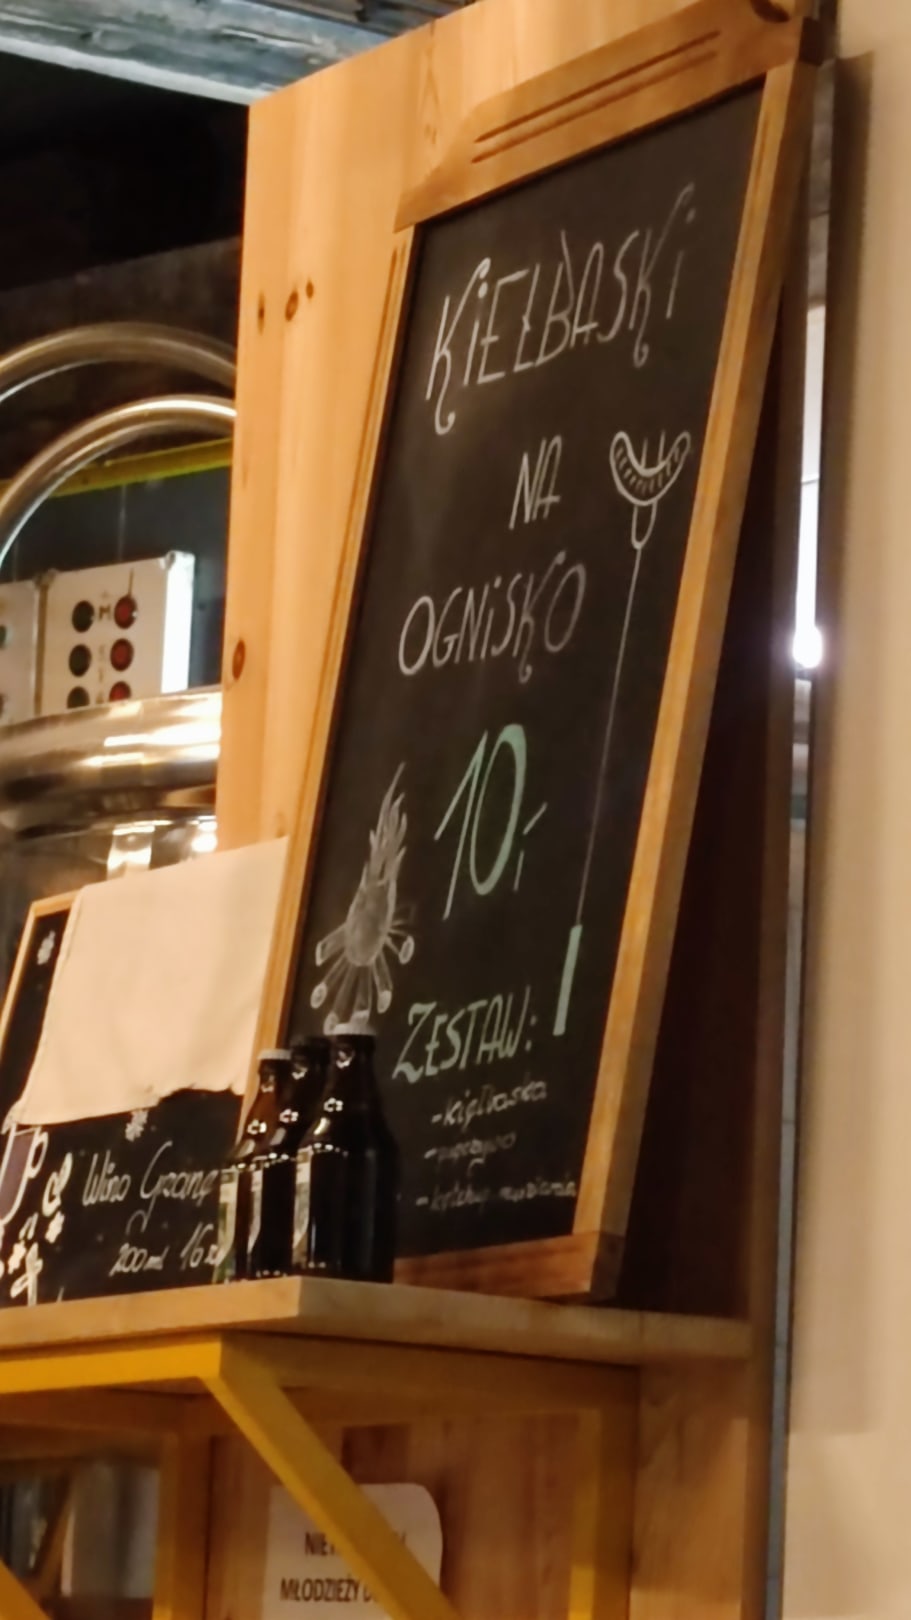 KiEŁBASKi
NA
OGNiSKO
10,-
ZESTAW:
- kiełbaska
- pieczywo
- ketchup, musztarda
Wino Grzane
200 ml 16 zł
MŁODZIEŻY